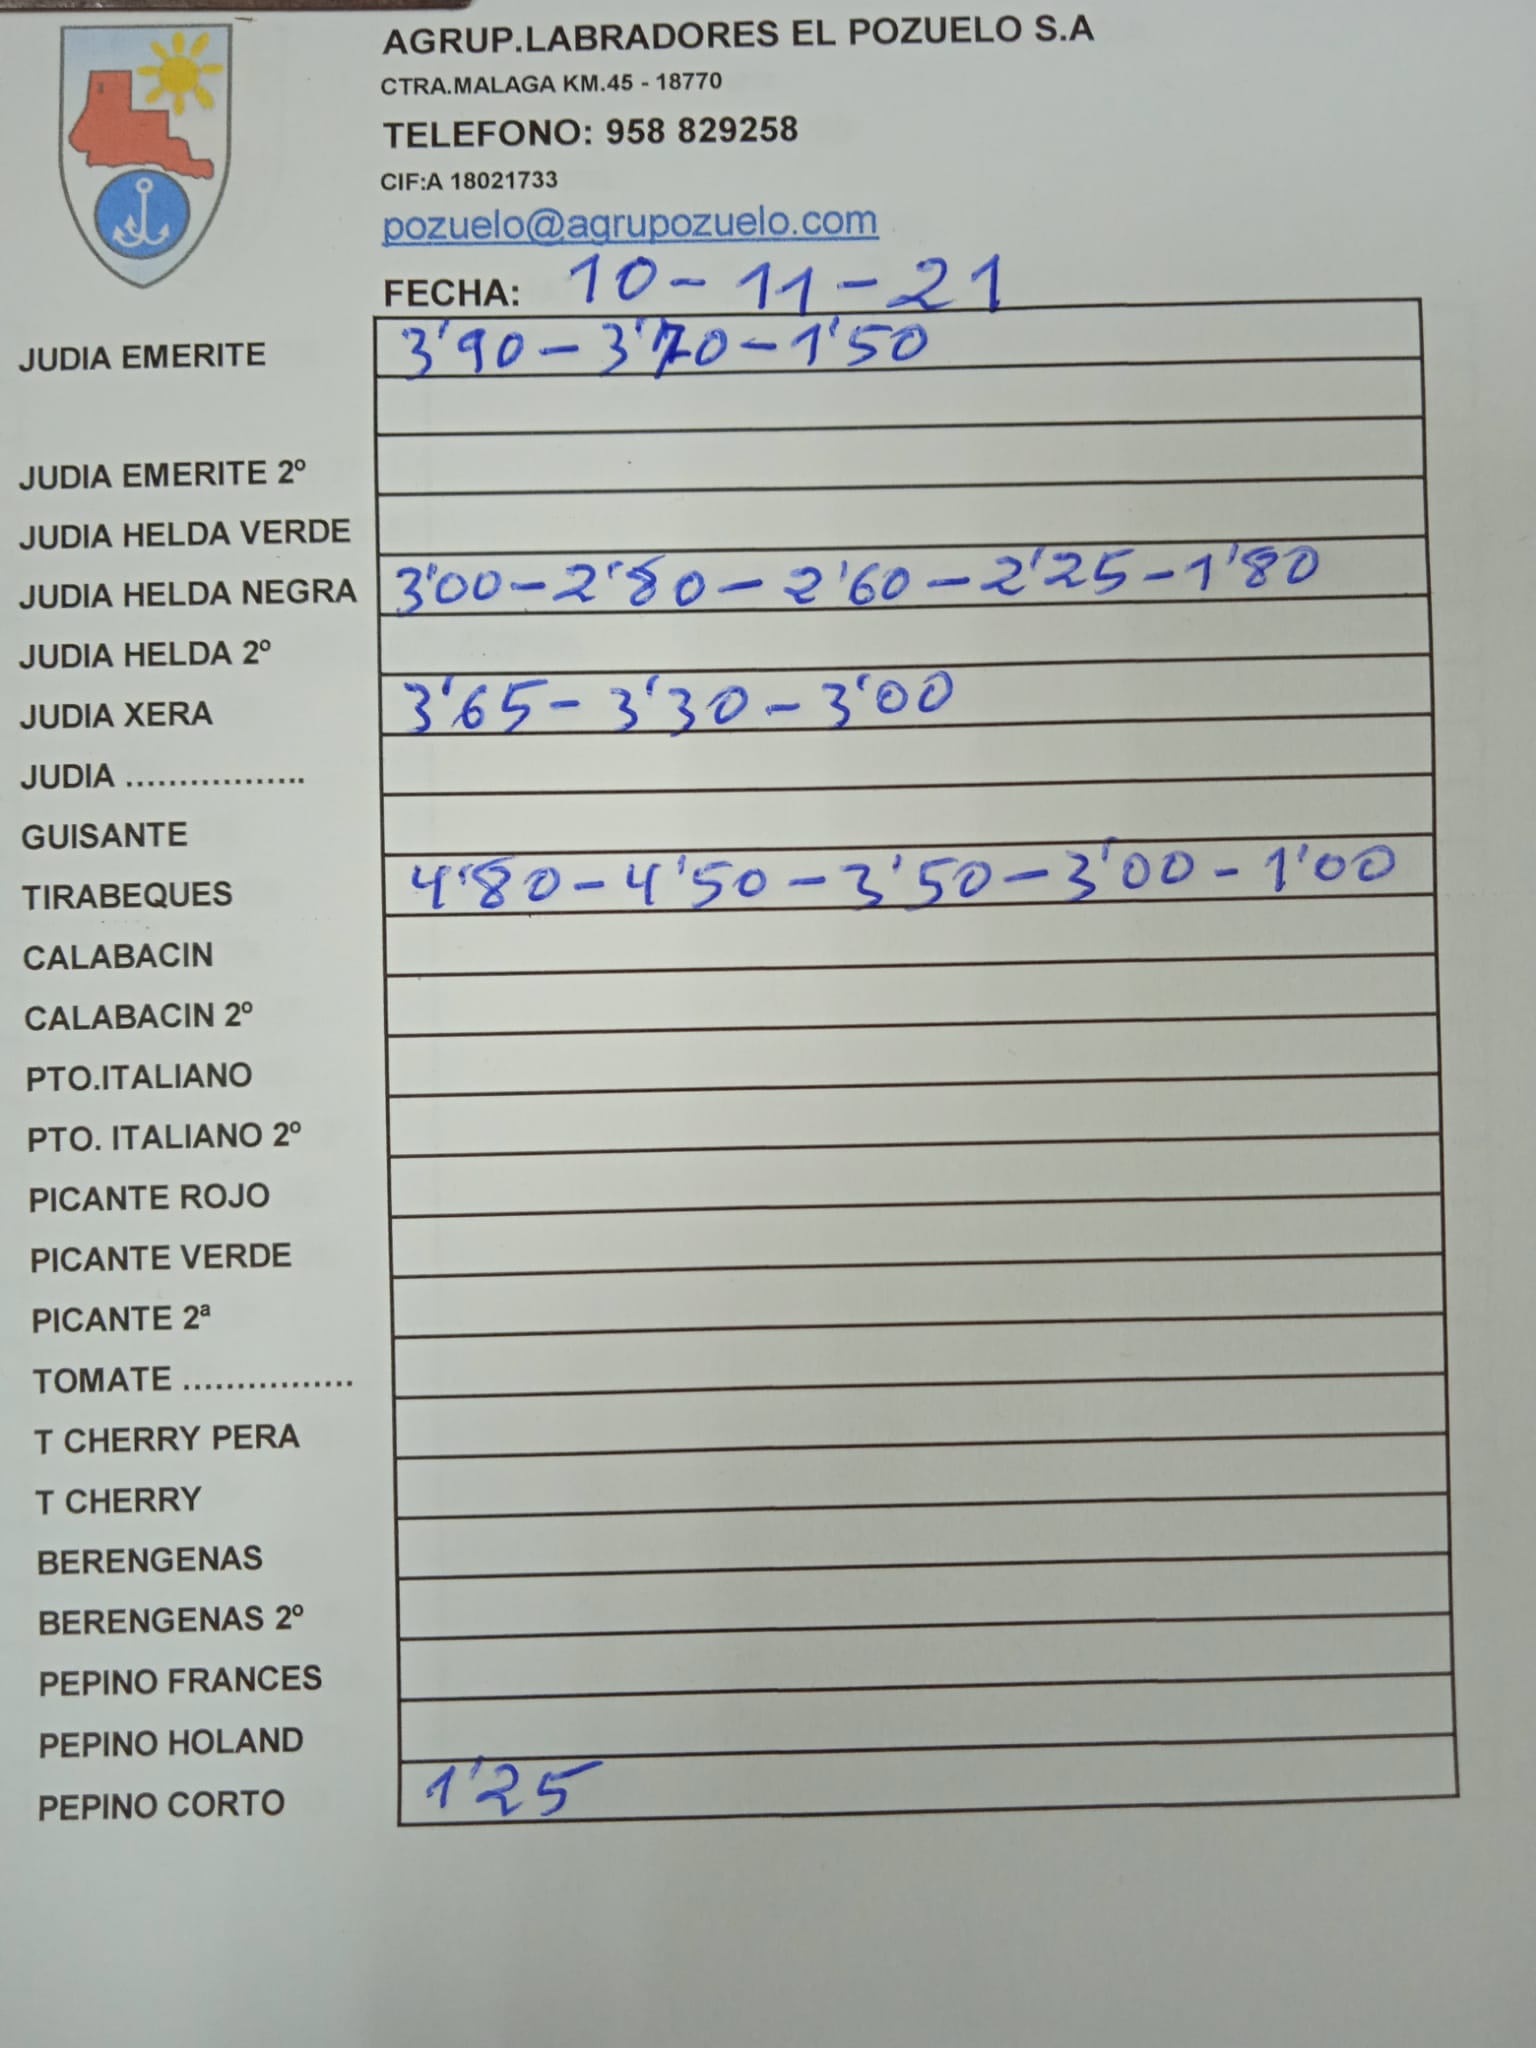 AGRUP.LABRADORES EL POZUELO S.A
CTRA.MALAGA KM.45 - 18770
TELEFONO: 958 829258
CIF:A 18021733
pozuelo@agrupozuelo.com
FECHA: 10-11-21
JUDIA EMERITE 3'90-3'70-1'50
JUDIA EMERITE 2º
JUDIA HELDA VERDE
JUDIA HELDA NEGRA 3'00-2'80-2'60-2'25-1'80
JUDIA HELDA 2º
JUDIA XERA 3'65-3'30-3'00
JUDIA .................
GUISANTE
TIRABEQUES 4'80-4'50-3'50-3'00-1'00
CALABACIN
CALABACIN 2º
PTO.ITALIANO
PTO. ITALIANO 2º
PICANTE ROJO
PICANTE VERDE
PICANTE 2ª
TOMATE ................
T CHERRY PERA
T CHERRY
BERENGENAS
BERENGENAS 2º
PEPINO FRANCES
PEPINO HOLAND
PEPINO CORTO 1'25